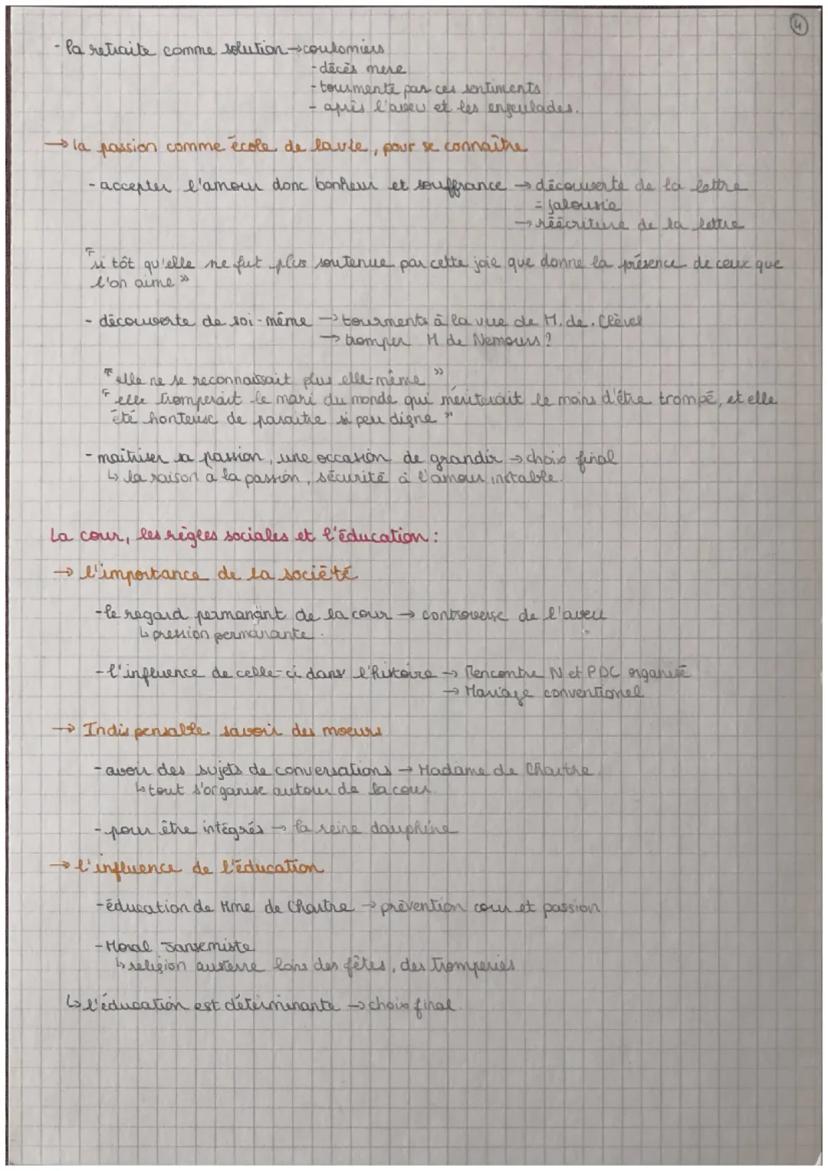 4
- la retraite comme solution → coulomiers
- décès mere
- tourmenté par ces sentiments
- après l'aveu et les engeulades.
→ la passion comme école de la vie, pour se connaître
- accepter l'amour donc bonheur et souffrance → découverte de la lettre
= jalousie
→ réécriture de la lettre
"si tôt qu'elle ne fut plus soutenue par cette joie que donne la présence de ceux que
l'on aime"
- découverte de soi-même → tourments à la vue de M. de. Clèves
→ tromper M de Nemours?
"elle ne se reconnaissait plus elle-même"
"elle tromperait le mari du monde qui mériterait le moins d'être trompé, et elle
été honteuse de paraitre si peu digne"
- maîtriser sa passion, une occasion de grandir → choix final
↳ la raison a la passion, sécurité à l'amour instable.
La cour, les règles sociales et l'éducation :
→ l'importance de la société
- le regard permanant de la cour → controverse de l'aveu
↳ pression permanante.
- l'influence de celle-ci dans l'histoire → Rencontre N et PDC organisé
→ Mariage conventionel
→ Indispensable savoir des moeurs
- avoir des sujets de conversations → Madame de Chartre
↳ tout s'organise autour de la cour.
- pour être intégrés → la reine dauphine
→ l'influence de l'éducation
- éducation de Mme de Chartre → prévention cour et passion
- Moral Jansemiste
↳ religion austerre loins des fêtes, des tromperies
↳ l'éducation est déterminante → choix final.